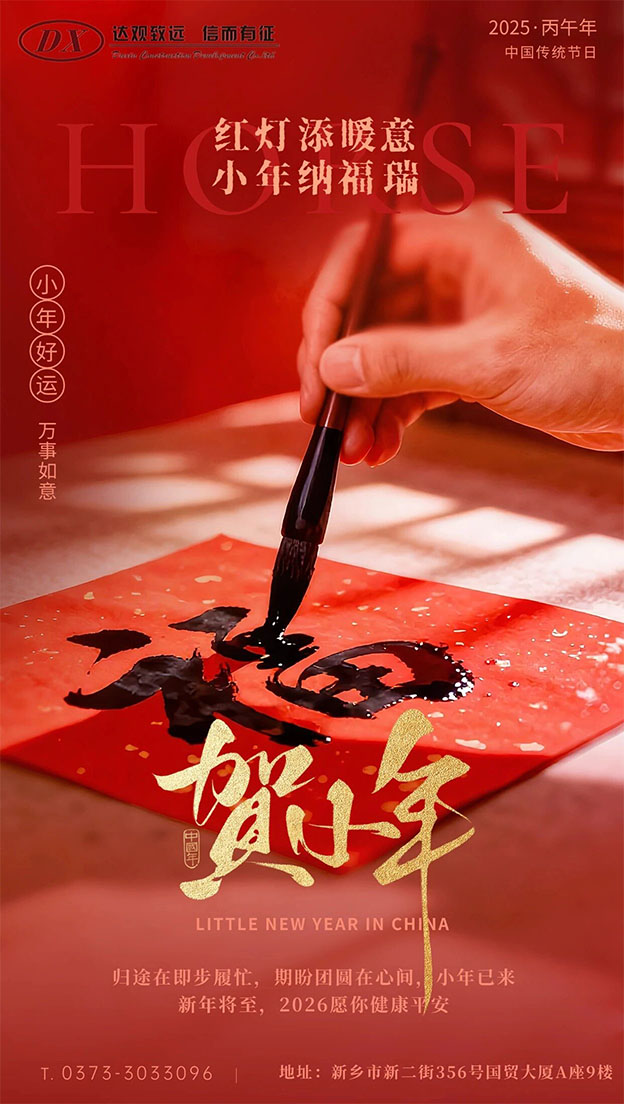 DX
达观致远 信而有征
2025·丙午年
中国传统节日
HORSE
红灯添暖意
小年纳福瑞
小年好运
万事如意
福
賀小年
中國年
LITTLE NEW YEAR IN CHINA
归途在即步履忙，期盼团圆在心间，小年已来
新年将至，2026愿你健康平安
T. 0373-3033096
地址：新乡市新二街356号国贸大厦A座9楼